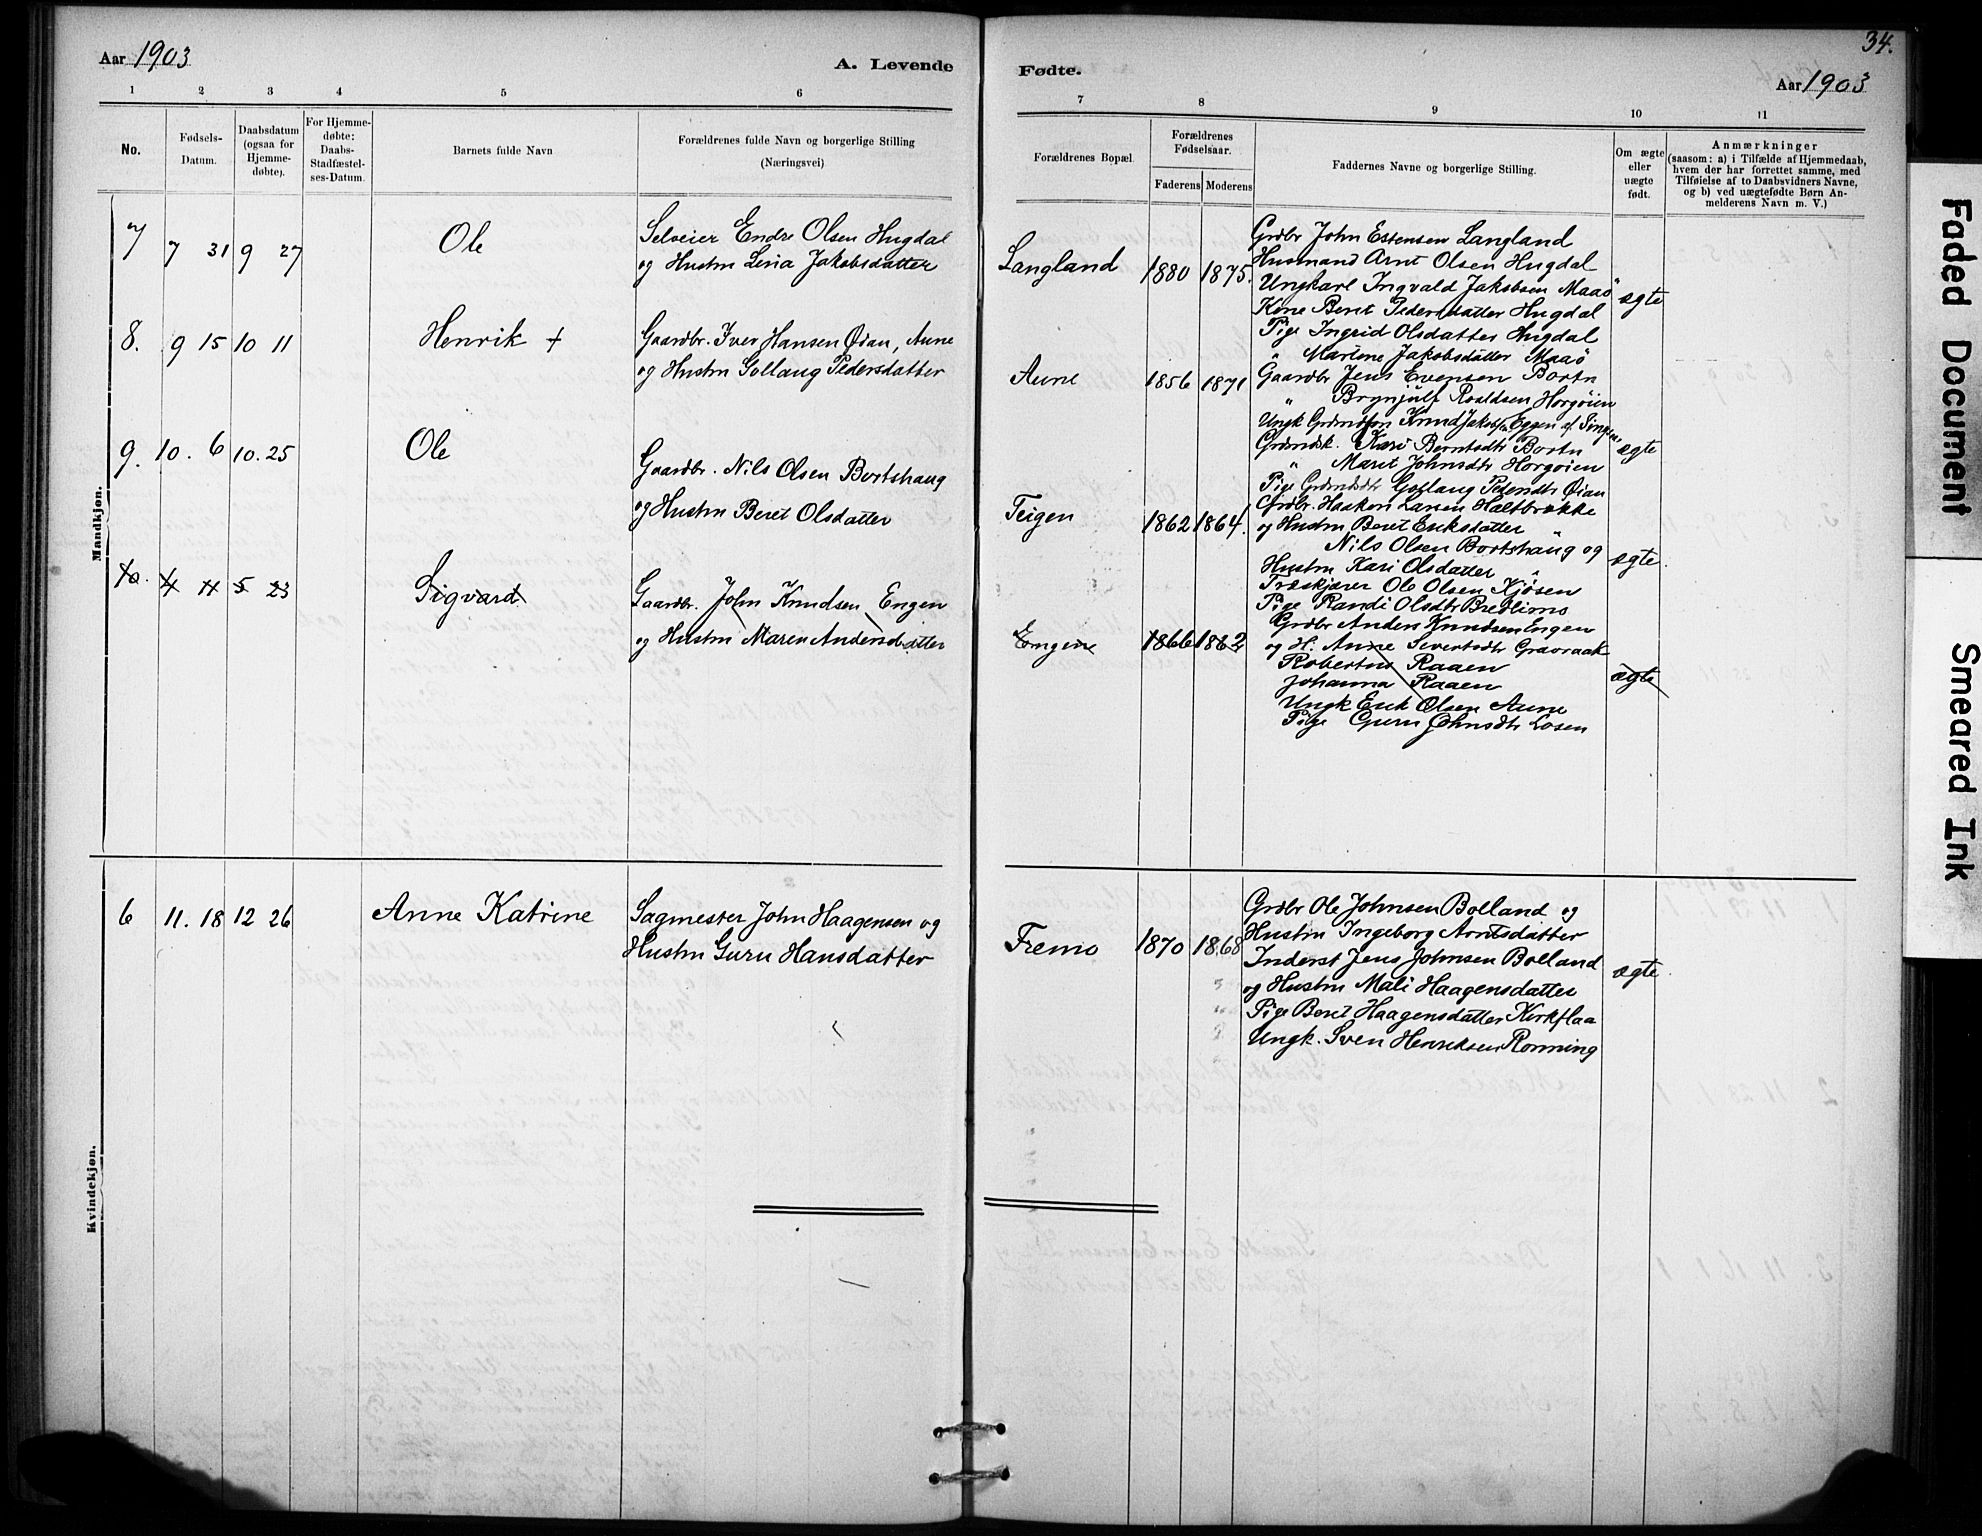 Aar 1903
A. Levende
1 2 3 4 5 6
No.
Fødsels-
Datum.
Daabsdatum
(ogsaa for
Hjemme-
døbte).
For Hjemme-
døbte:
Daabs-
Stadfæstel-
ses-Datum.
Barnets fulde Navn
Forældrenes fulde Navn og borgerlige Stilling
(Næringsvei)
Mandkjøn.
7 7 31 9 27 Ole
Selveier Endre Olsen Hugdal
og Hustru Lena Jakobsdatter
8. 9 15 10 11 Henrik +
Gaardbr. Iver Hansen Øian, Aune
og Hustru Sollaug Pedersdatter
9. 10. 6 10. 25 Ole
Gaardbr. Nils Olsen Bortshaug
og Hustru Beret Olsdatter
10. 4 11 5 23 Sigvard
Gaardbr. John Knudsen Engen
og Hustru Maren Andersdatter
Kvindekjøn.
6 11. 18 12 26 Anne Katrine
Sagmester John Haagensen og
Hustru Guru Hansdatter
34.
Fødte.
Aar 1903
7 8 9 10 11
Forældrenes Bopæl.
Forældrenes
Fødselsaar.
Faderens Moderens
Faddernes Navne og borgerlige Stilling.
Om ægte
eller
uægte
født.
Anmærkninger
(saasom: a) i Tilfælde af Hjemmedaab,
hvem der har forrettet samme, med
Tilføielse af to Daabsvidners Navne,
og b) ved uægtefødte Børn An-
melderens Navn m. V.)
Langland 1880 1875.
Grdbr John Estensen Langland
Husmand Arnt Olsen Hugdal
Ungkarl Ingvald Jakobsen Maaö
Kone Beret Pedersdatter Hugdal
Pige Ingrid Olsdatter Hugdal
" Martene Jakobsdatter Maaö
ægte
Aune 1856 1871
Gaardbr Jens Evensen Bortn
" Brynjulf Roaldsen Horgöien
Ungk Grdmdsøn Knud Jakobsen Eggen af
Grdmdsk. Kari Berntsdtr Bortn
" Marit Johnsdtr Horgöien
Pige Grdmdsdtr Gollaug Pedersdtr Øian
ægte
Teigen 1862 1864.
Grdbr. Haakon Larsen Haltbrække
og Hustru Beret Eriksdatter
Nils Olsen Bortshaug og
Hustru Kari Olsdatter "
Træskjærer Ole Olsen Kjösen
Pige Randi Olsdtr Bredlimo
ægte.
Engen 1866 1862
Grdbr Anders Knudsen Engen
og H. Anne Sivertsdtr Gravraak
Robertus Raaen
Johanna Raaen
Ungk Erik Olsen Aune
Pige Guru Johnsdtr Losen
ægte
Fremo 1870 1868
Grdbr Ole Johnsen Bolland og
Hustru Ingeborg Arntsdatter
Inderst Jens Johnsen Bolland
og Hustru Mali Haagensdatter
Pige Beret Haagensdatter Kirkflaa
Ungk. Sven Henriksen Ronning
ægte.
Faded Document
Smeared Ink